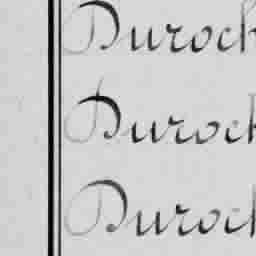 Duroch
Duroch
Duroch